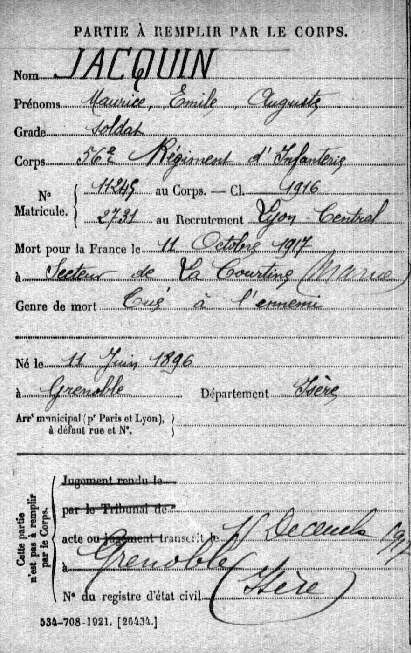 PARTIE À REMPLIR PAR LE CORPS.
Nom JACQUIN
Prénoms Maurice, Emile, Auguste
Grade soldat
Corps 56e Régiment d'Infanterie
N° Matricule. { 11245 au Corps. — Cl. 1916
2731 au Recrutement Lyon Central
Mort pour la France le 11 Octobre 1917
à Secteur de La Courtine (Marne)
Genre de mort Tué à l'ennemi
Né le 11 Juin 1896
à Grenoble Département Isère
Arrt municipal (pr Paris et Lyon), }
à défaut rue et N°.
Cette partie n'est pas à remplir par le Corps.
Jugement rendu le
par le Tribunal de
acte ou jugement transcrit le 11 Décembre 1917
à Grenoble
N° du registre d'état civil (Isère)
534-708-1921. [26434.]